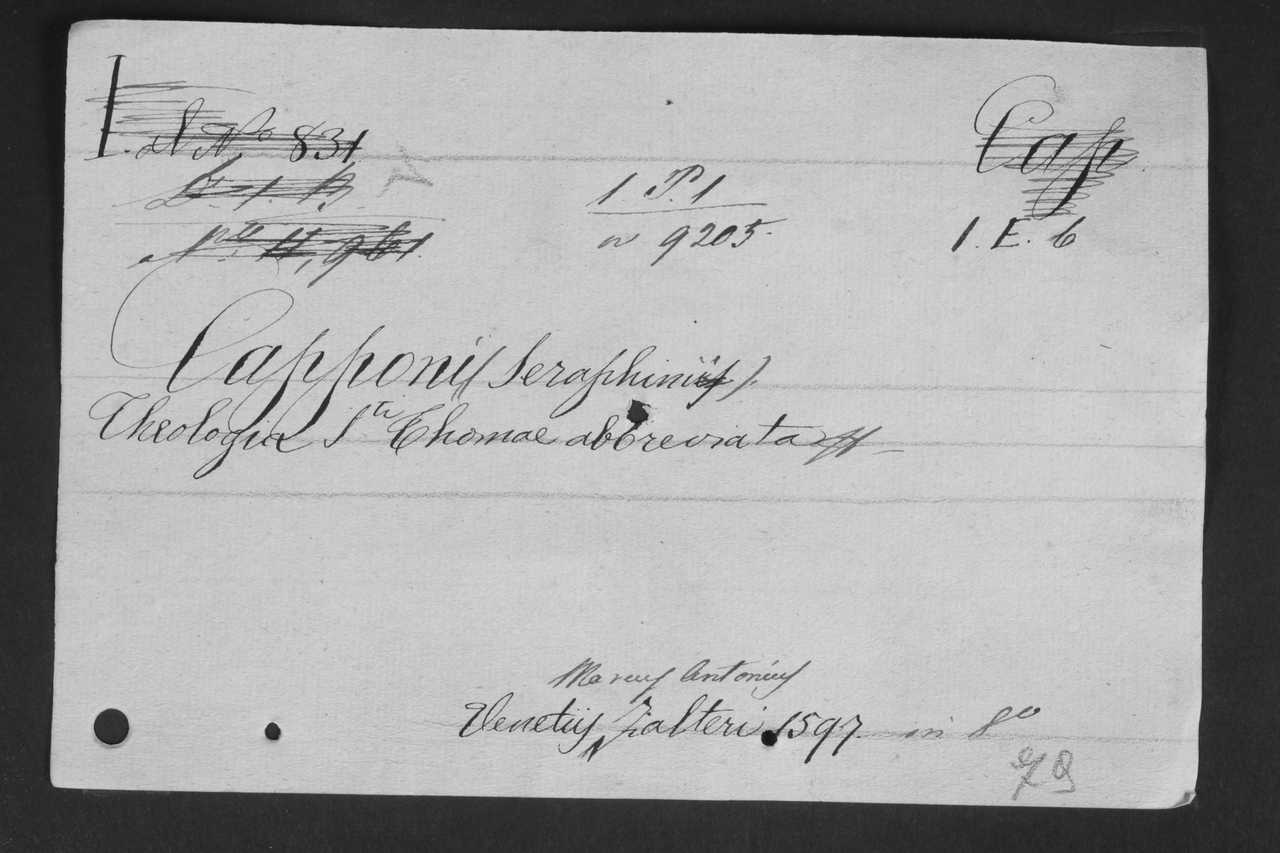 I. N No 831
L. 1. B
Nro 11,961.
1. P. 1
n 9205.
Cap
1. E. 6
Capponis Seraphini).
Theologia Sti Thomae abbreviata
Marcus Antonius
Venetijs Zalteri 1597. in 8o